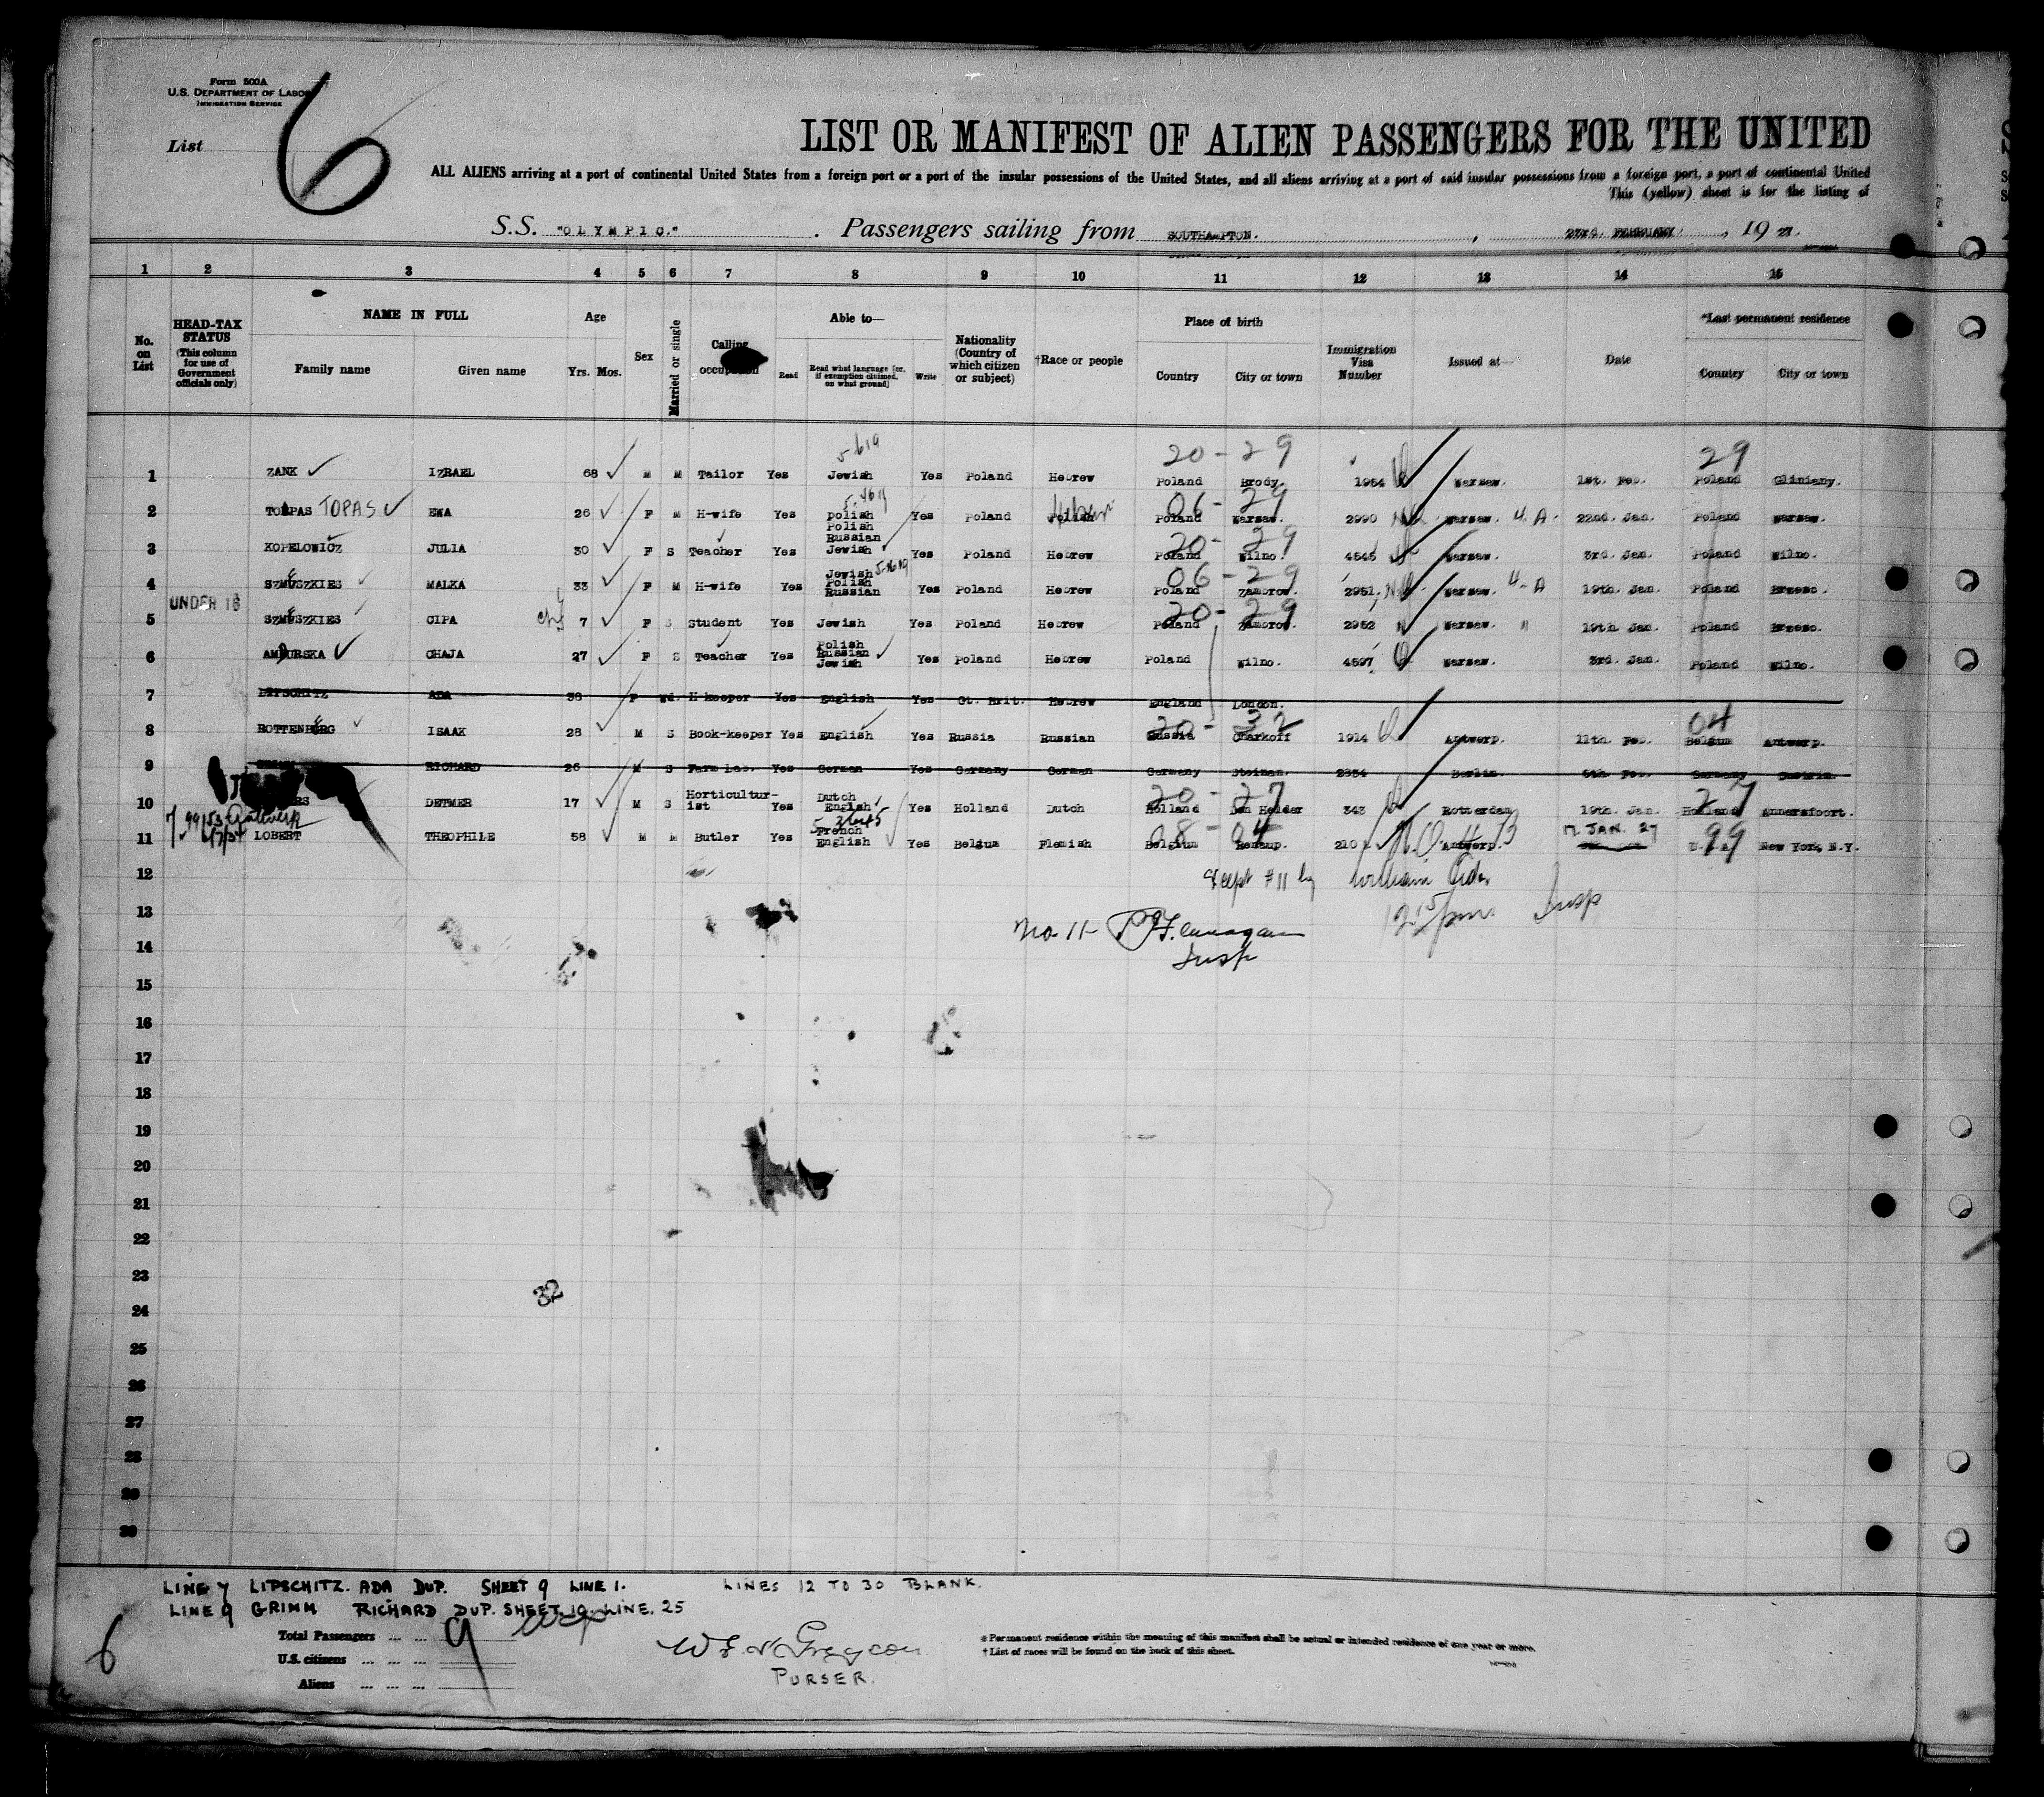 Form 500A
U.S. DEPARTMENT OF LABOR
IMMIGRATION SERVICE
List 6
LIST OR MANIFEST OF ALIEN PASSENGERS FOR THE UNITED
ALL ALIENS arriving at a port of continental United States from a foreign port or a port of the insular possessions of the United States, and all aliens arriving at a port of said insular possessions from a foreign port, a port of continental United
This (yellow) sheet is for the listing of
S.S. "OLYMPIC." Passengers sailing from SOUTHAMPTON. , 23rd. FEBRUARY , 19 27.
1 2 3 4 5 6 7 8 9 10 11 12 13 14 15
No. on List
HEAD-TAX STATUS (This column for use of Government officials only)
NAME IN FULL
Family name Given name
Age Yrs. Mos.
Sex
Married or single
Calling occupation
Able to—
Read Read what language [or, if exemption claimed, on what ground] Write
Nationality (Country of which citizen or subject)
†Race or people
Place of birth
Country City or town
Immigration Visa Number
Issued at—
Date
*Last permanent residence
Country City or town
5-619 20-29 29
1 ZANK IZRAEL 68 M M Tailor Yes Jewish Yes Poland Hebrew Poland Brody. 1954 Warsaw. 1st. Feb. Poland Gliniany.
06-29
2 TOPAS EWA 26 F M H-wife Yes Polish Yes Poland Polish Poland Warsaw. 2990 Warsaw. 4.A. 22nd. Jan. Poland Warsaw.
20-29
3 KOPELOWICZ JULIA 30 F S Teacher Yes Polish Russian Jewish Yes Poland Hebrew Poland Wilno. 4545 Warsaw. 3rd. Jan. Poland Wilno.
06-29
4 SZMUSZKIES MALKA 33 F M H-wife Yes Jewish Polish Russian Yes Poland Hebrew Poland Zambrow. 2951. Warsaw. 4-A 19th. Jan. Poland Brzesc.
UNDER 16 20-29
5 SZMUSZKIES CIPA 7 F S Student Yes Jewish Yes Poland Hebrew Poland Zambrow. 2952 Warsaw. " 19th. Jan. Poland Brzesc.
6 AMDURSKA CHAJA 27 F S Teacher Yes Polish Russian Jewish Yes Poland Hebrew Poland Wilno. 4597 Warsaw. 3rd. Jan. Poland Wilno.
7 LIPSCHITZ ADA 38 F Wd. H-keeper Yes English Yes Gt. Brit. Hebrew England London.
20-32 04
8 ROTTENBERG ISAAK 28 M S Book-keeper Yes English Yes Russia Russian Russia Charkoff 1914 Antwerp. 11th. Feb. Belgium Antwerp.
9 RICHARD 26 M S Farm Lab. Yes German Yes Germany German Germany Berlin. 5th. Feb. Germany
20-27 27
10 DETMER 17 M S Horticultur-ist Yes Dutch English Yes Holland Dutch Holland Den Helder 343 Rotterdam 19th. Jan. Holland Amersfoort.
08-04 17 JAN. 27 99
11 LOBERT THEOPHILE 58 M M Butler Yes French English Yes Belgium Flemish Belgium 210 Antwerp. New York, N.Y.
12
13
14
15
16
17
18
19
20
21
22
23
24
25
26
27
28
29
30
Except #11 by William
Insp
No 11- Flannagan
Insp
32
LINE 7 LIPSCHITZ. ADA DUP. SHEET 9 LINE 1. LINES 12 TO 30 BLANK.
LINE 9 GRIMM RICHARD DUP. SHEET. 10. LINE. 25
Total Passengers ... ... 9
U.S. citizens ... ... ...
Aliens ... ... ...
6
PURSER.
* Permanent residence within the meaning of this manifest shall be actual or intended residence of one year or more.
† List of races will be found on the back of this sheet.